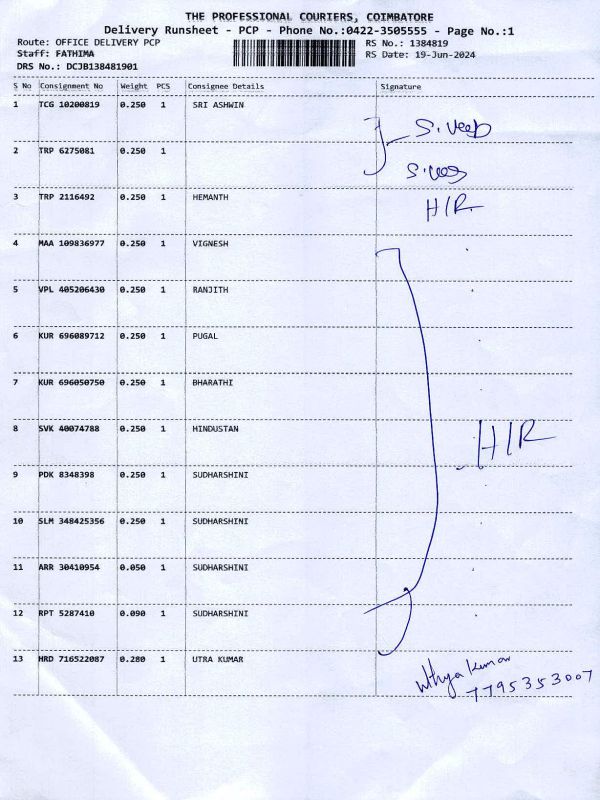 THE PROFESSIONAL COURIERS, COIMBATORE
Delivery Runsheet - PCP - Phone No.:0422-3505555 - Page No.:1
Route: OFFICE DELIVERY PCP RS No.: 1384819
Staff: FATHIMA RS Date: 19-Jun-2024
DRS No.: DCJB138481901
S No Consignment No Weight PCS Consignee Details Signature
1 TCG 10200819 0.250 1 SRI ASHWIN
2 TRP 6275081 0.250 1
3 TRP 2116492 0.250 1 HEMANTH H/R
4 MAA 109836977 0.250 1 VIGNESH
5 VPL 405206430 0.250 1 RANJITH
6 KUR 696089712 0.250 1 PUGAL
7 KUR 696050750 0.250 1 BHARATHI
8 SVK 40074788 0.250 1 HINDUSTAN H/R
9 PDK 8348398 0.250 1 SUDHARSHINI
10 SLM 348425356 0.250 1 SUDHARSHINI
11 ARR 30410954 0.050 1 SUDHARSHINI
12 RPT 5287410 0.090 1 SUDHARSHINI
13 HRD 716522087 0.280 1 UTRA KUMAR
7795353007